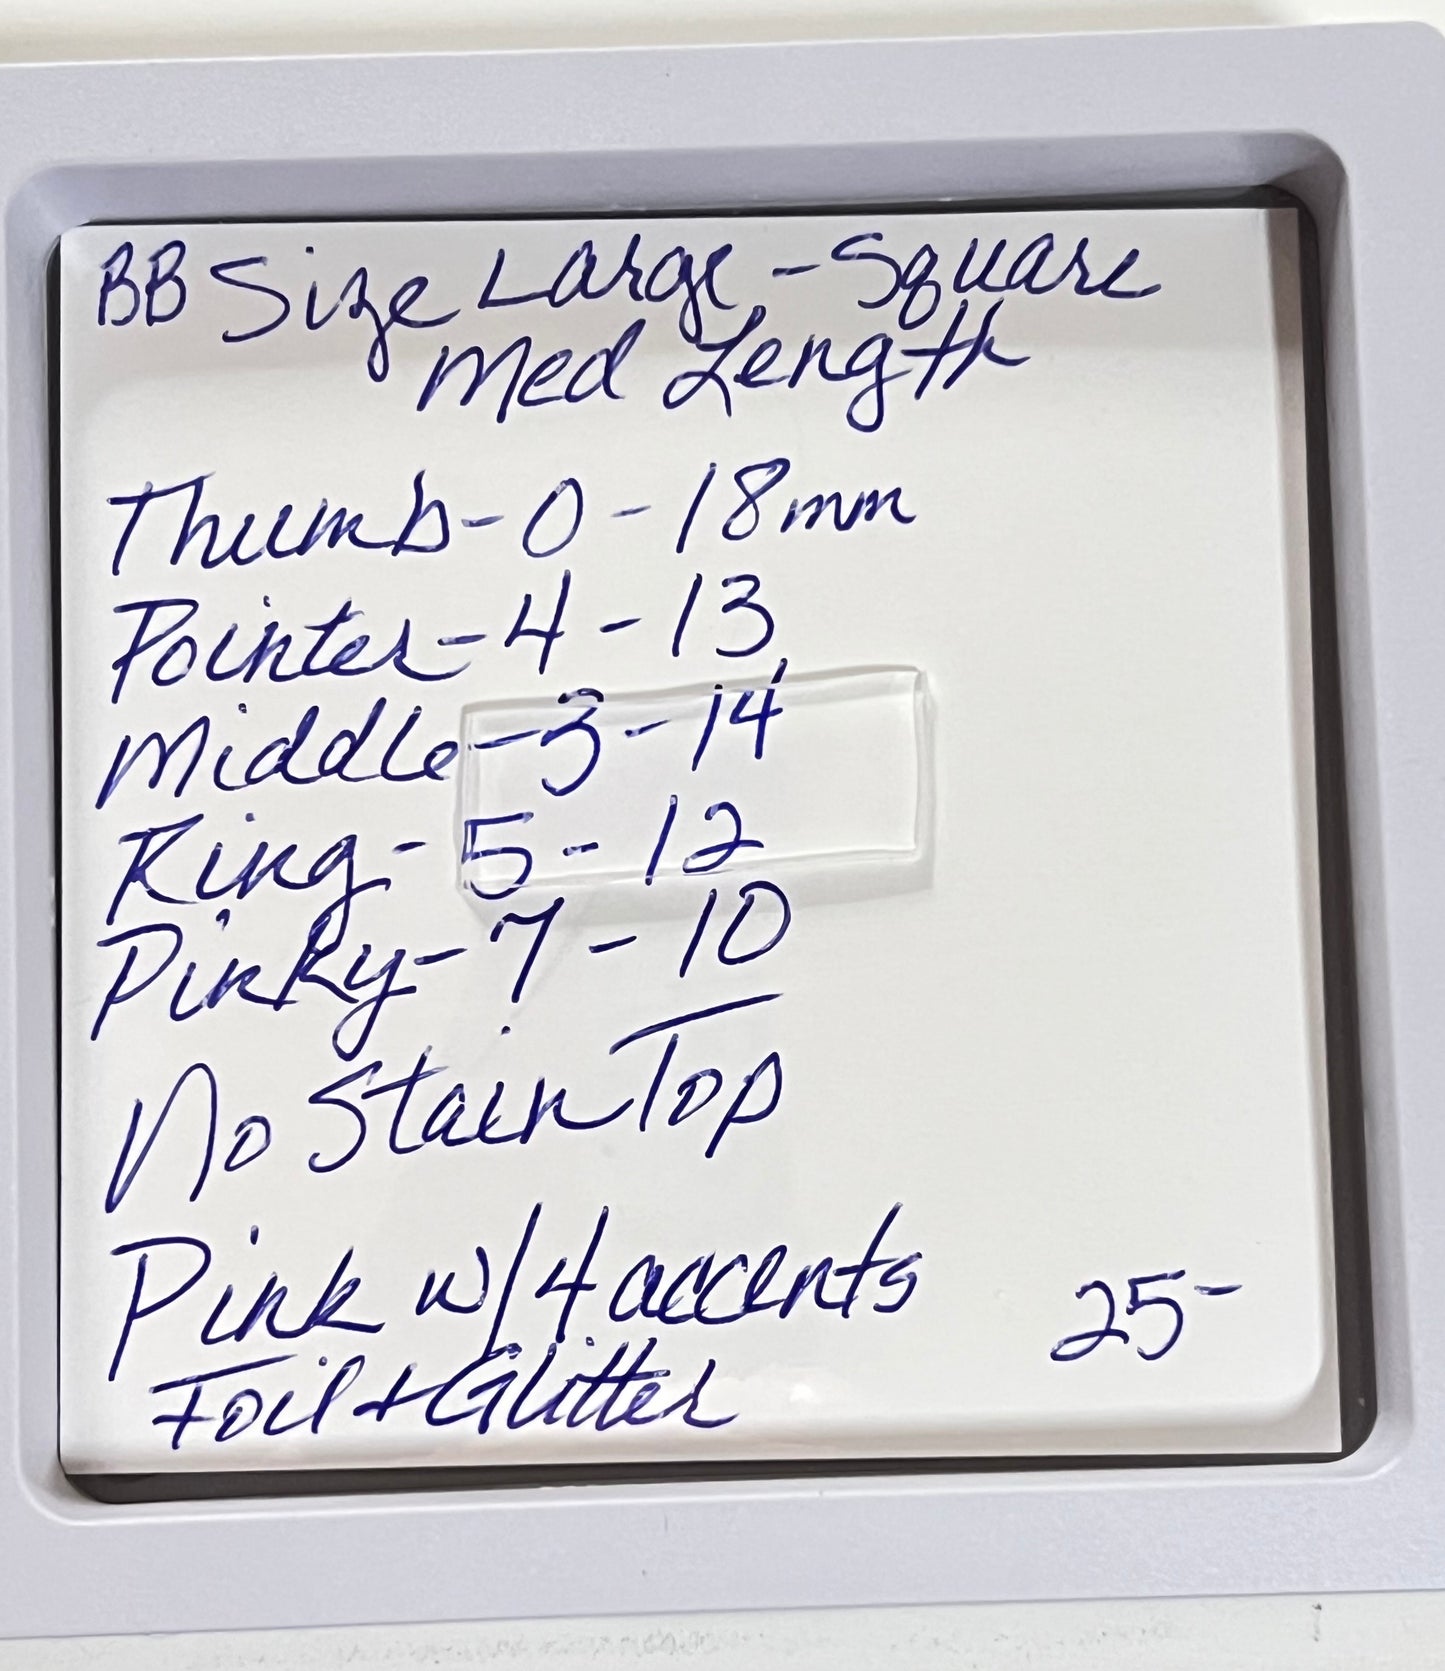 BB Size Large - Square
Med Length
Thumb - 0 - 18mm
Pointer - 4 - 13
Middle - 3 - 14
Ring - 5 - 12
Pinky - 7 - 10
No Stain Top
Pink w/ 4 accents 25-
Foil + Glitter